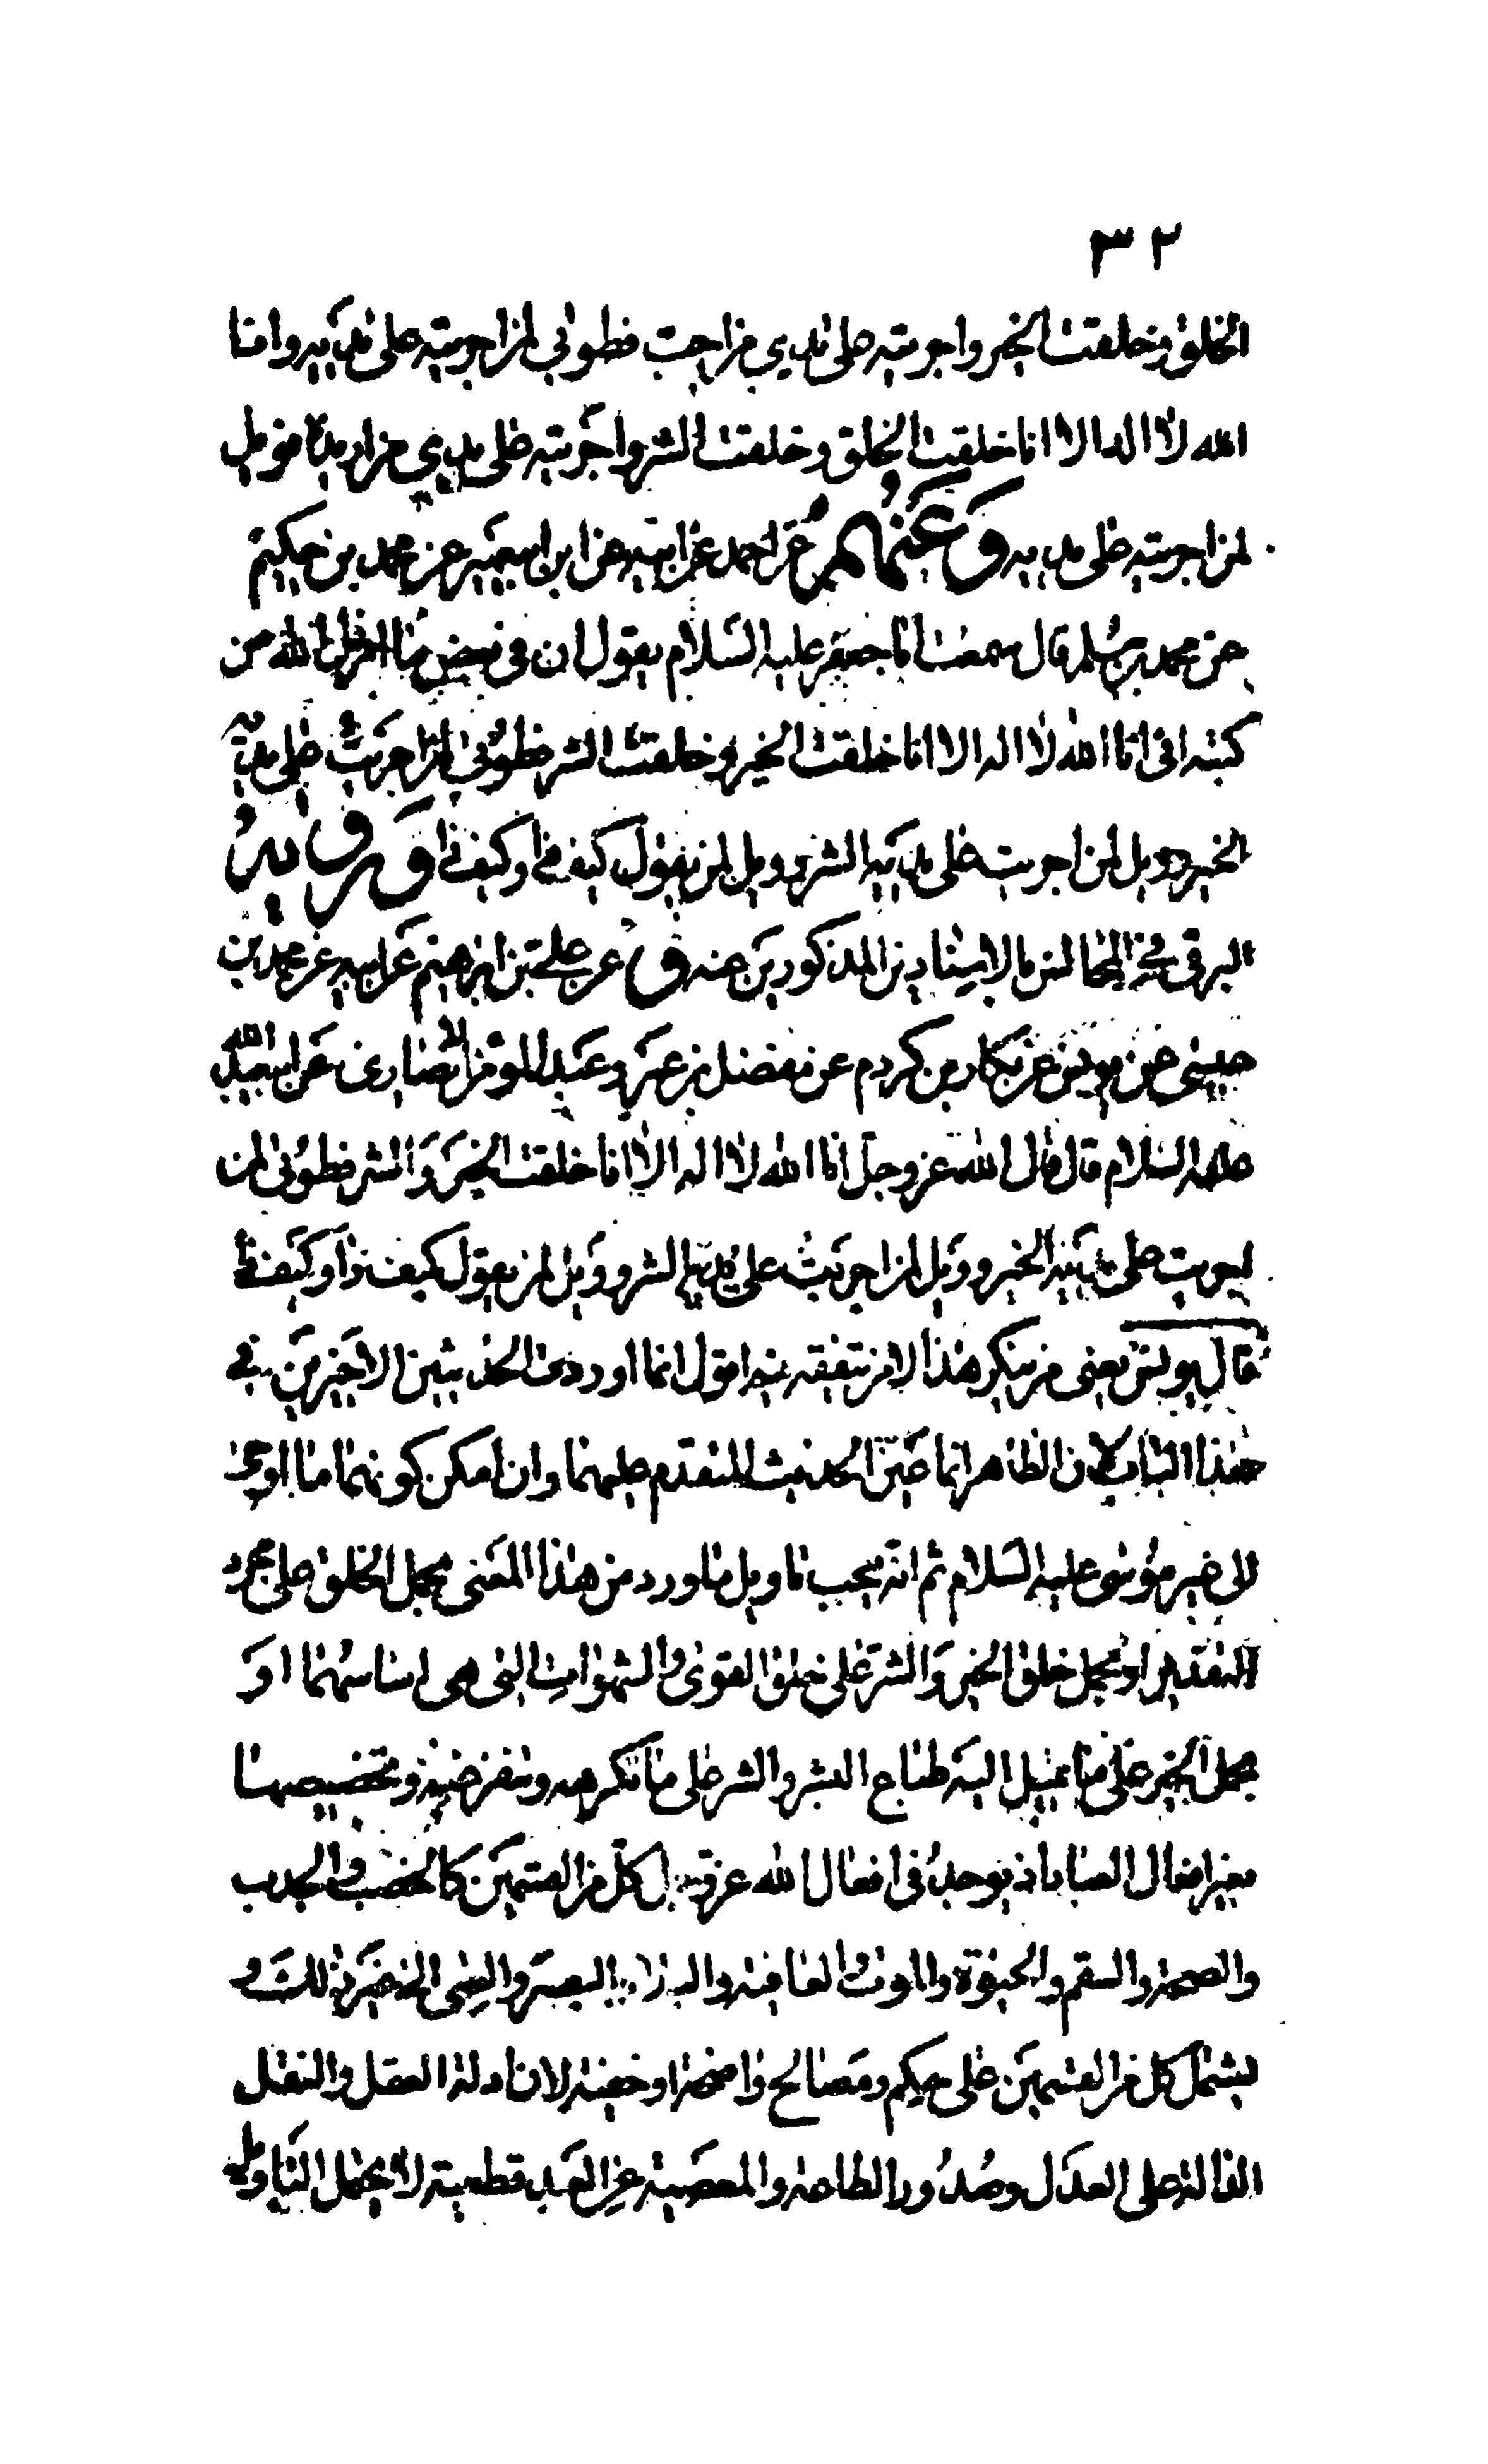 ٣٢
الخلق وخلقت الخير واجريته على يدي من احب فطوبى لمن اجريته على يديه وانا
الله لا اله الا انا خلقت الخلق وخلقت الشر واجريته على يدي من اريده فويل
لمن اجريته على يديه وعنهم عن احمد عن ابيه عن ابن ابي عمير عن محمد بن حكيم
عن محمد بن مسلم قال سمعت ابا جعفر عليه السلام يقول ان في بعض ما انزل الله من
كتبه اني انا الله لا اله الا انا خلقت الخير وخلقت الشر فطوبى لمن اجريت على يديه
الخير وويل لمن اجريت على يديه الشر وويل لمن يقول كيف ذا وكيف ذا ورواه
البرقي في المحاسن بالاسنادين المذكورين عنه وعن علي بن ابراهيم عن ابيه عن محمد بن
عيسى عن يونس عن بكار بن كردم عن مفضل بن عمر وعبد المؤمن الانصاري عن ابي عبد الله
عليه السلام قال قال الله عز وجل انا الله لا اله الا انا خلقت الخير والشر فطوبى لمن
اجريت على يديه الخير وويل لمن اجريت على يديه الشر وويل لمن يقول كيف ذا وكيف ذا
قال يونس يعني من ينكر هذا الامر بتفقه فيه اقول انما اوردت الحديثين الاخيرين في
هذا الباب لان الظاهر انهما عين الحديث المتقدم عليهما وان امكن كونهما مما اوحي
الى غير موسى عليه السلام ثم انه يجب تاويل ما ورد من هذا المعنى بحمل الخلق على مجرد
التقدير او بحمل خلق الخير والشر على خلق القوى والشهوات التي هي اسبابهما او
بحمل الخير على ما يميل اليه طباع البشر والشر على ما تكرهه وتنفر عنه وتخصيصهما
بغير افعال العباد اذ يوجد في افعال الله عز وجل كل من القسمين كالخصب والجدب
والصحة والسقم والحيوة والموت والعافية والبلاء واليسر والعسر الى غير ذلك و
يشتمل كل من القسمين على حكم ومصالح واضحة او خفية لان ادلة العقل والنقل
الدالة على العدل وصدور الطاعة والمعصية عن العبد قطعية لا يحتمل التاويل